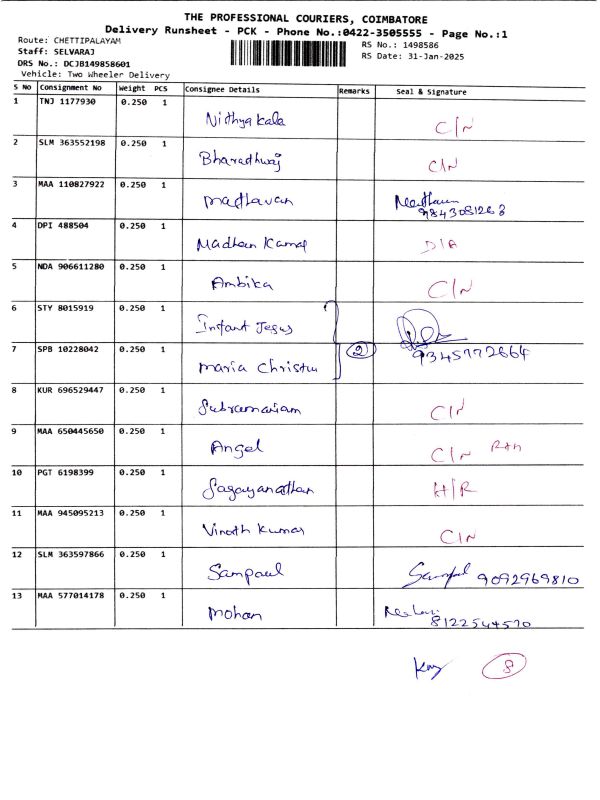 THE PROFESSIONAL COURIERS, COIMBATORE
Delivery Runsheet - PCK - Phone No.:0422-3505555 - Page No.:1
Route: CHETTIPALAYAM
Staff: SELVARAJ
DRS No.: DCJB149858601
Vehicle: Two Wheeler Delivery
RS No.: 1498586
RS Date: 31-Jan-2025
S No Consignment No Weight PCS Consignee Details Remarks Seal & Signature
1 TNJ 1177930 0.250 1 Nithyakala C/N
2 SLM 363552198 0.250 1 Bharadhwaj C/N
3 MAA 110827922 0.250 1 Madhavan 9843081268
4 DPI 488504 0.250 1 Madhan Kamal D/A
5 NDA 906611280 0.250 1 Ambika C/N
6 STY 8015919 0.250 1 Infant Jesus
7 SPB 10228042 0.250 1 Maria Christu 2 9345772664
8 KUR 696529447 0.250 1 Subramaniam C/N
9 MAA 650445650 0.250 1 Angel C/N
10 PGT 6198399 0.250 1 Sagayanathan H/R
11 MAA 945095213 0.250 1 Vinoth Kumar C/N
12 SLM 363597866 0.250 1 Sampaul 9092969810
13 MAA 577014178 0.250 1 Mohan 8122544570
8